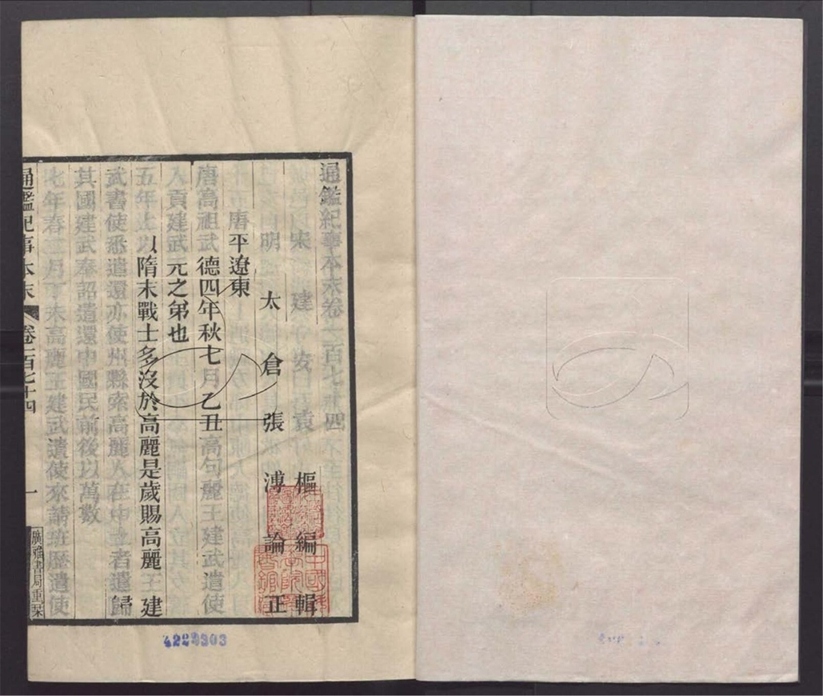 通鑑紀事本末卷一百七十四
宋建安袁樞編輯
明太倉張溥論正
唐平遼東
唐高祖武德四年秋七月乙丑高句麗王建武遣使
入貢建武元之弟也
五年上以隋末戰士多沒於高麗是歲賜高麗王建
武書使悉遣還亦使州縣索高麗人在中土者遣歸
其國建武奉詔遣還中國民前後以萬數
七年春二月丁未高麗王建武遣使來請班歷遣使
通鑑紀事本末
卷一百七十四
一
廣雅書局重栞
4229303